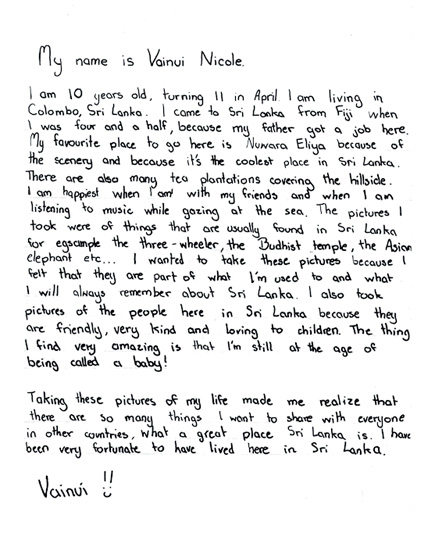 My name is Vainui Nicole.
I am 10 years old, turning 11 in April. I am living in
Colombo, Sri Lanka. I came to Sri Lanka from Fiji when
I was four and a half, because my father got a job here.
My favourite place to go here is Nuwara Eliya because of
the scenery and because it's the coolest place in Sri Lanka.
There are also many tea plantations covering the hillside.
I am happiest when I am with my friends and when I am
listening to music while gazing at the sea. The pictures I
took were of things that are usually found in Sri Lanka
for egsample the three-wheeler, the Budhist temple, the Asian
elephant etc... I wanted to take these pictures because I
felt that they are part of what I'm used to and what
I will always remember about Sri Lanka. I also took
pictures of the people here in Sri Lanka because they
are friendly, very kind and loving to children. The thing
I find very amazing is that I'm still at the age of
being called a baby!
Taking these pictures of my life made me realize that
there are so many things I want to share with everyone
in other countries, what a great place Sri Lanka is. I have
been very fortunate to have lived here in Sri Lanka.
Vainui !!